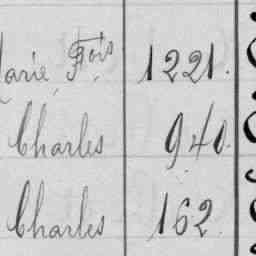 Marie Fois 1221.
Charles 940.
Charles 162.